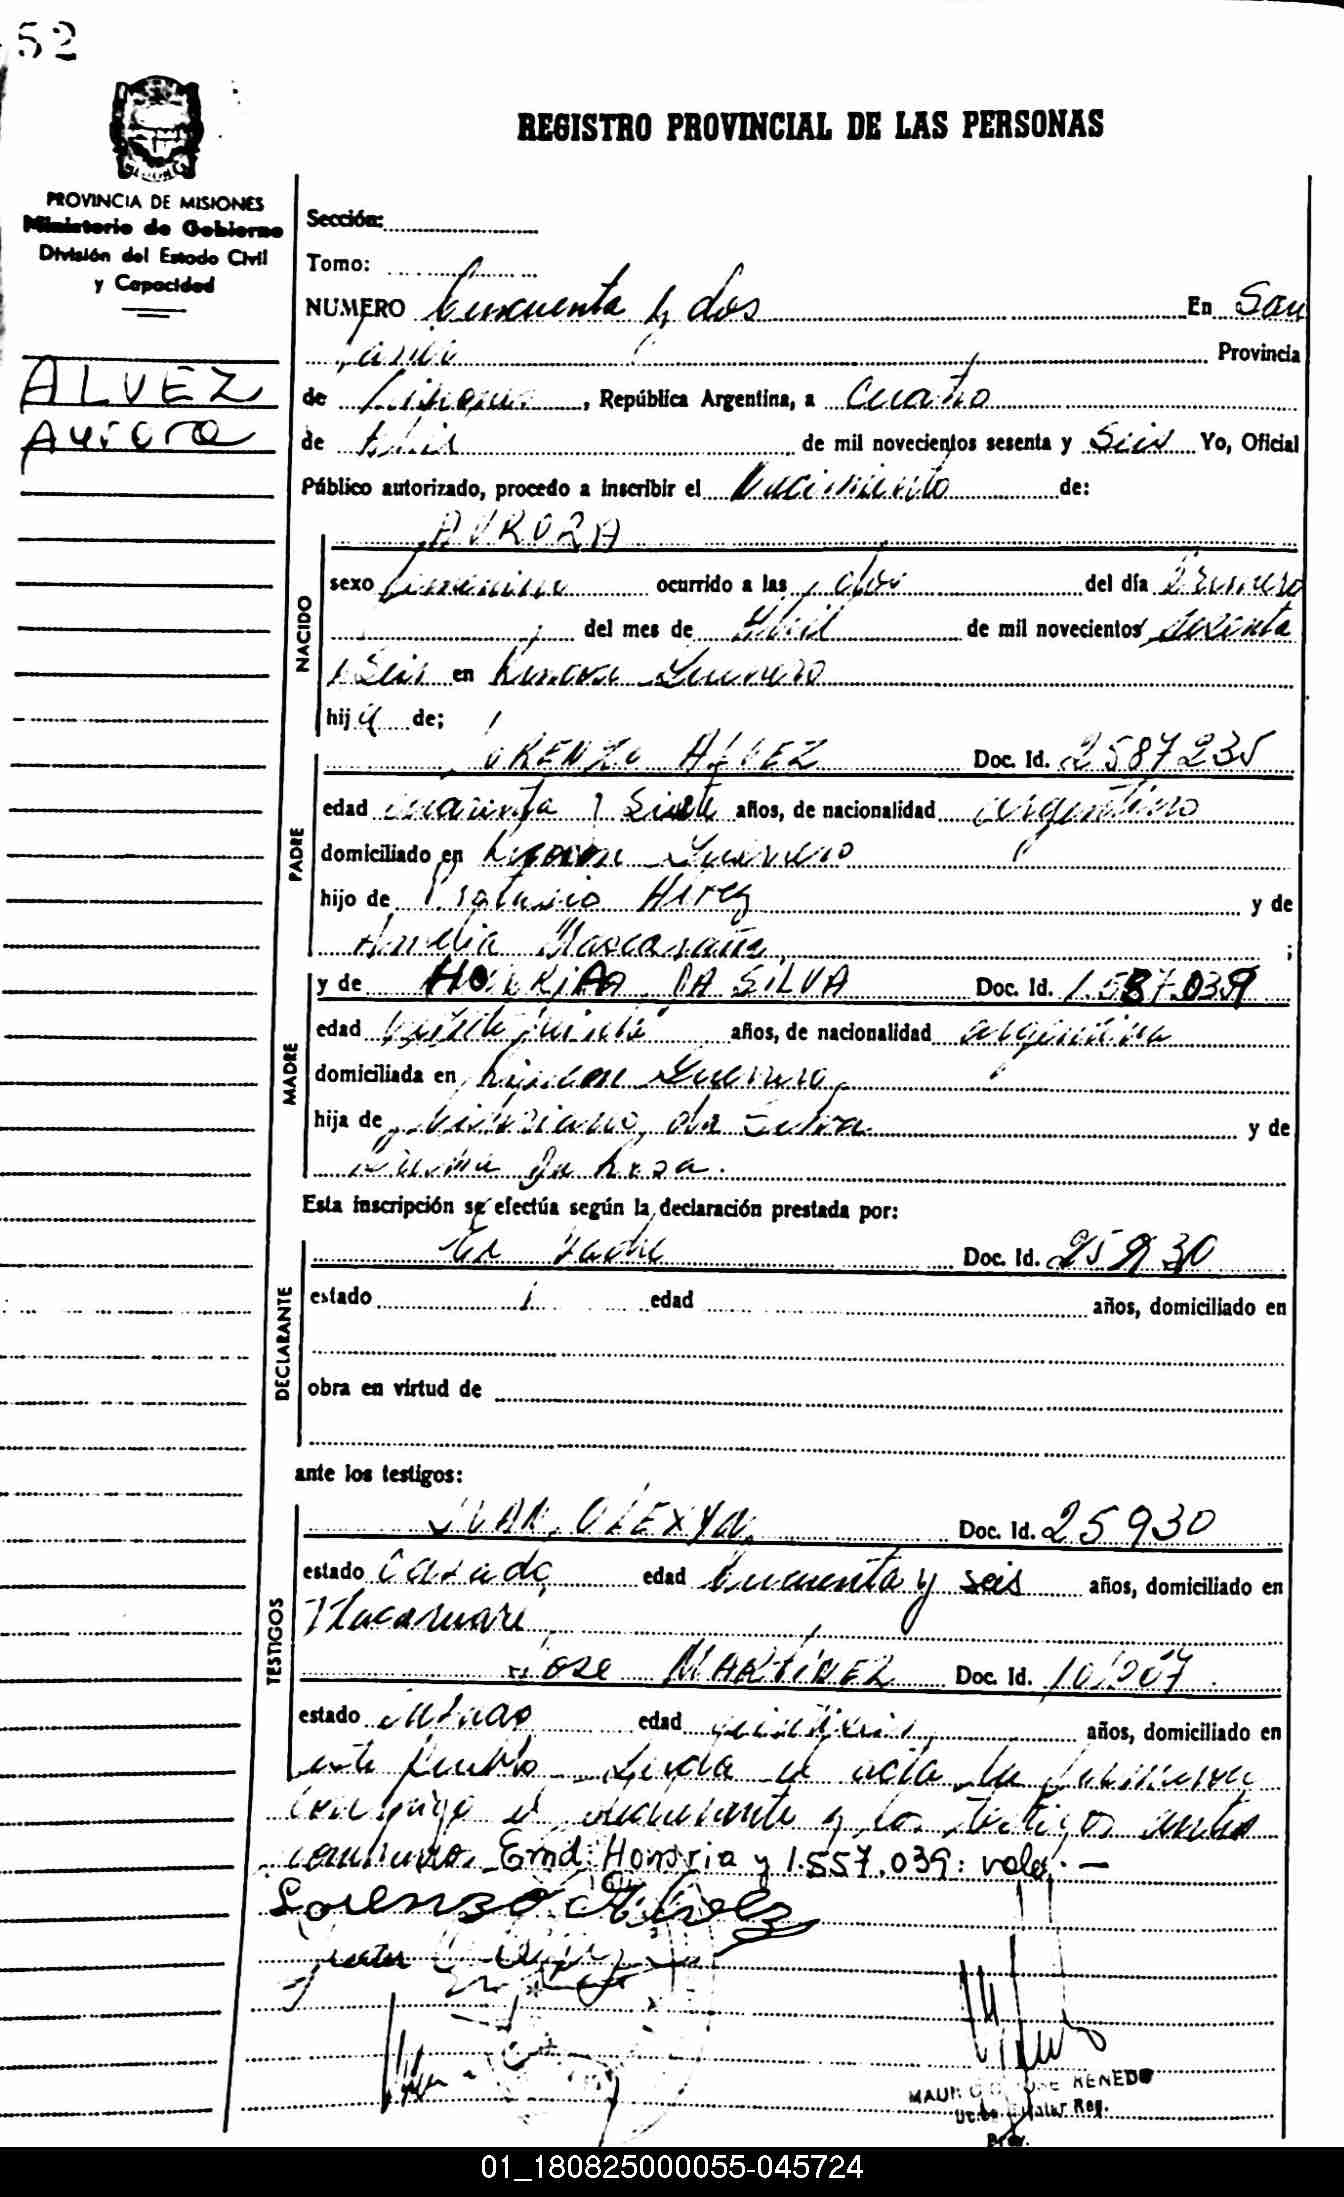 52
REGISTRO PROVINCIAL DE LAS PERSONAS
PROVINCIA DE MISIONES
Ministerio de Gobierno
División del Estado Civil
y Capacidad
ALVEZ
Aurora
Sección:
Tomo:
NUMERO Cincuenta y dos En San
Javier Provincia
de Misiones, República Argentina, a Cuatro
de Abril de mil novecientos sesenta y Seis Yo, Oficial
Público autorizado, procedo a inscribir el Nacimiento de:
AURORA
NACIDO
sexo femenino ocurrido a las dos del día Primero
del mes de Abril de mil novecientos sesenta
y Seis en Guerrero
hija de;
PADRE
LORENZO ALVEZ Doc. Id. 2587235
edad cuarenta y Siete años, de nacionalidad argentino
domiciliado en Guerrero
hijo de Protasio Alvez y de
Amelia ;
MADRE
y de HONORIA DA SILVA Doc. Id. 1.587.039
edad años, de nacionalidad argentina
domiciliada en Guerrero
hija de da Silva y de
Rosa.
Esta inscripción se efectúa según la declaración prestada por:
DECLARANTE
El Padre Doc. Id.
estado edad años, domiciliado en
obra en virtud de
ante los testigos:
TESTIGOS
JUAN OLEXYN Doc. Id. 25930
estado Casado edad Cincuenta y seis años, domiciliado en
Itacaruaré
Jose MARTINEZ Doc. Id. 101207
estado casado edad años, domiciliado en
este Pueblo Leida el acta la firmaron
conmigo el declarante y los testigos antes
Emd: Honoria y 1.557.039: vale. —
Lorenzo Alvez
Juan
MAURICIO JOSE RENEDO
Titular Reg.
Prov.
01_180825000055-045724